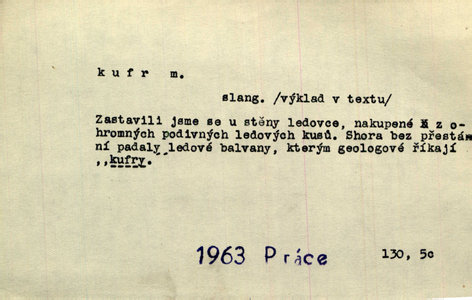 kufr m.
slang. /výklad v textu/
Zastavili jsme se u stěny ledovce, nakupené z o-
hromných podivných ledových kusů. Shora bez přestá
ní padaly ledové balvany, kterým geologové říkají
,,kufry.
1963 Práce
130, 5c